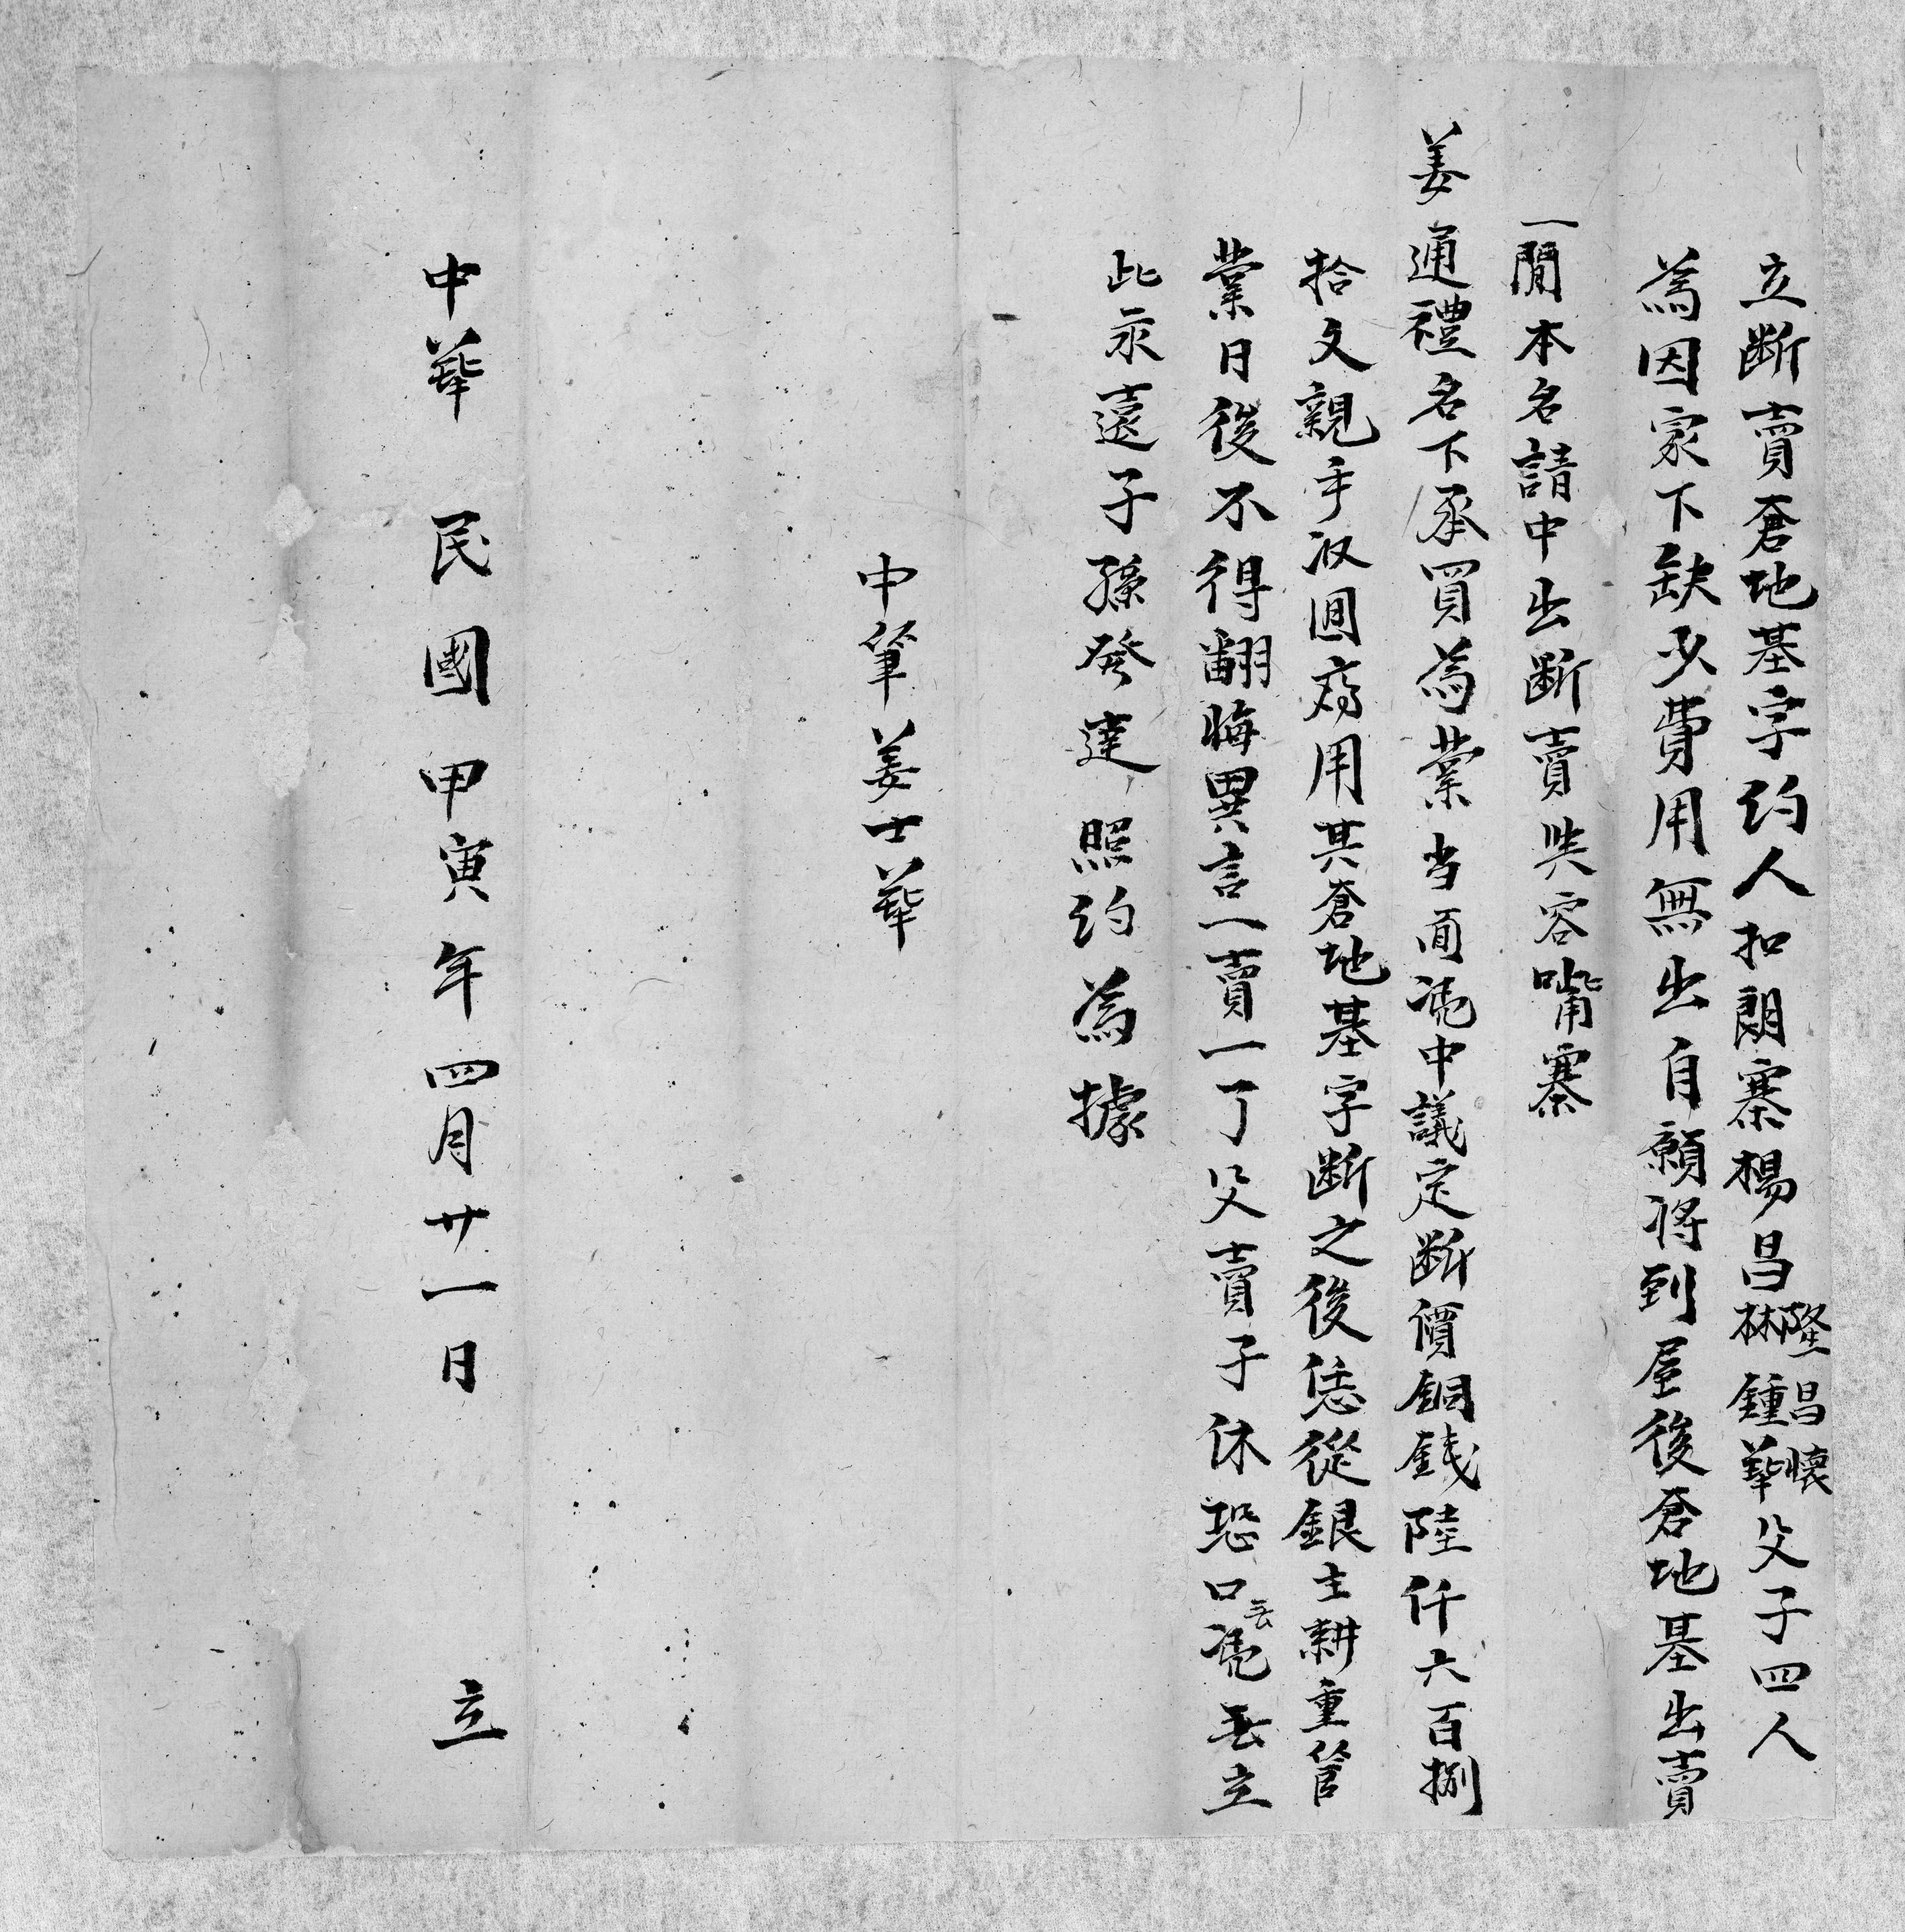 立断賣倉地基字约人扣朗寨楊昌隆昌懷彬鍾華父子四人
為因家下缺少費用無出自願将到屋後倉地基出賣
一間本名請中出断賣與容嘴寨
姜通禮名下承買為業当面凭中議定断價銅錢陸仟六百捌
拾文親手収囬應用其倉地基字断之後恁從銀主耕重管
業日後不得翻悔異言一賣一了父賣子休恐口云凭無立
此永遠子孫發達照约為據
中筆姜士華
中華民國甲寅年四月廿一日立